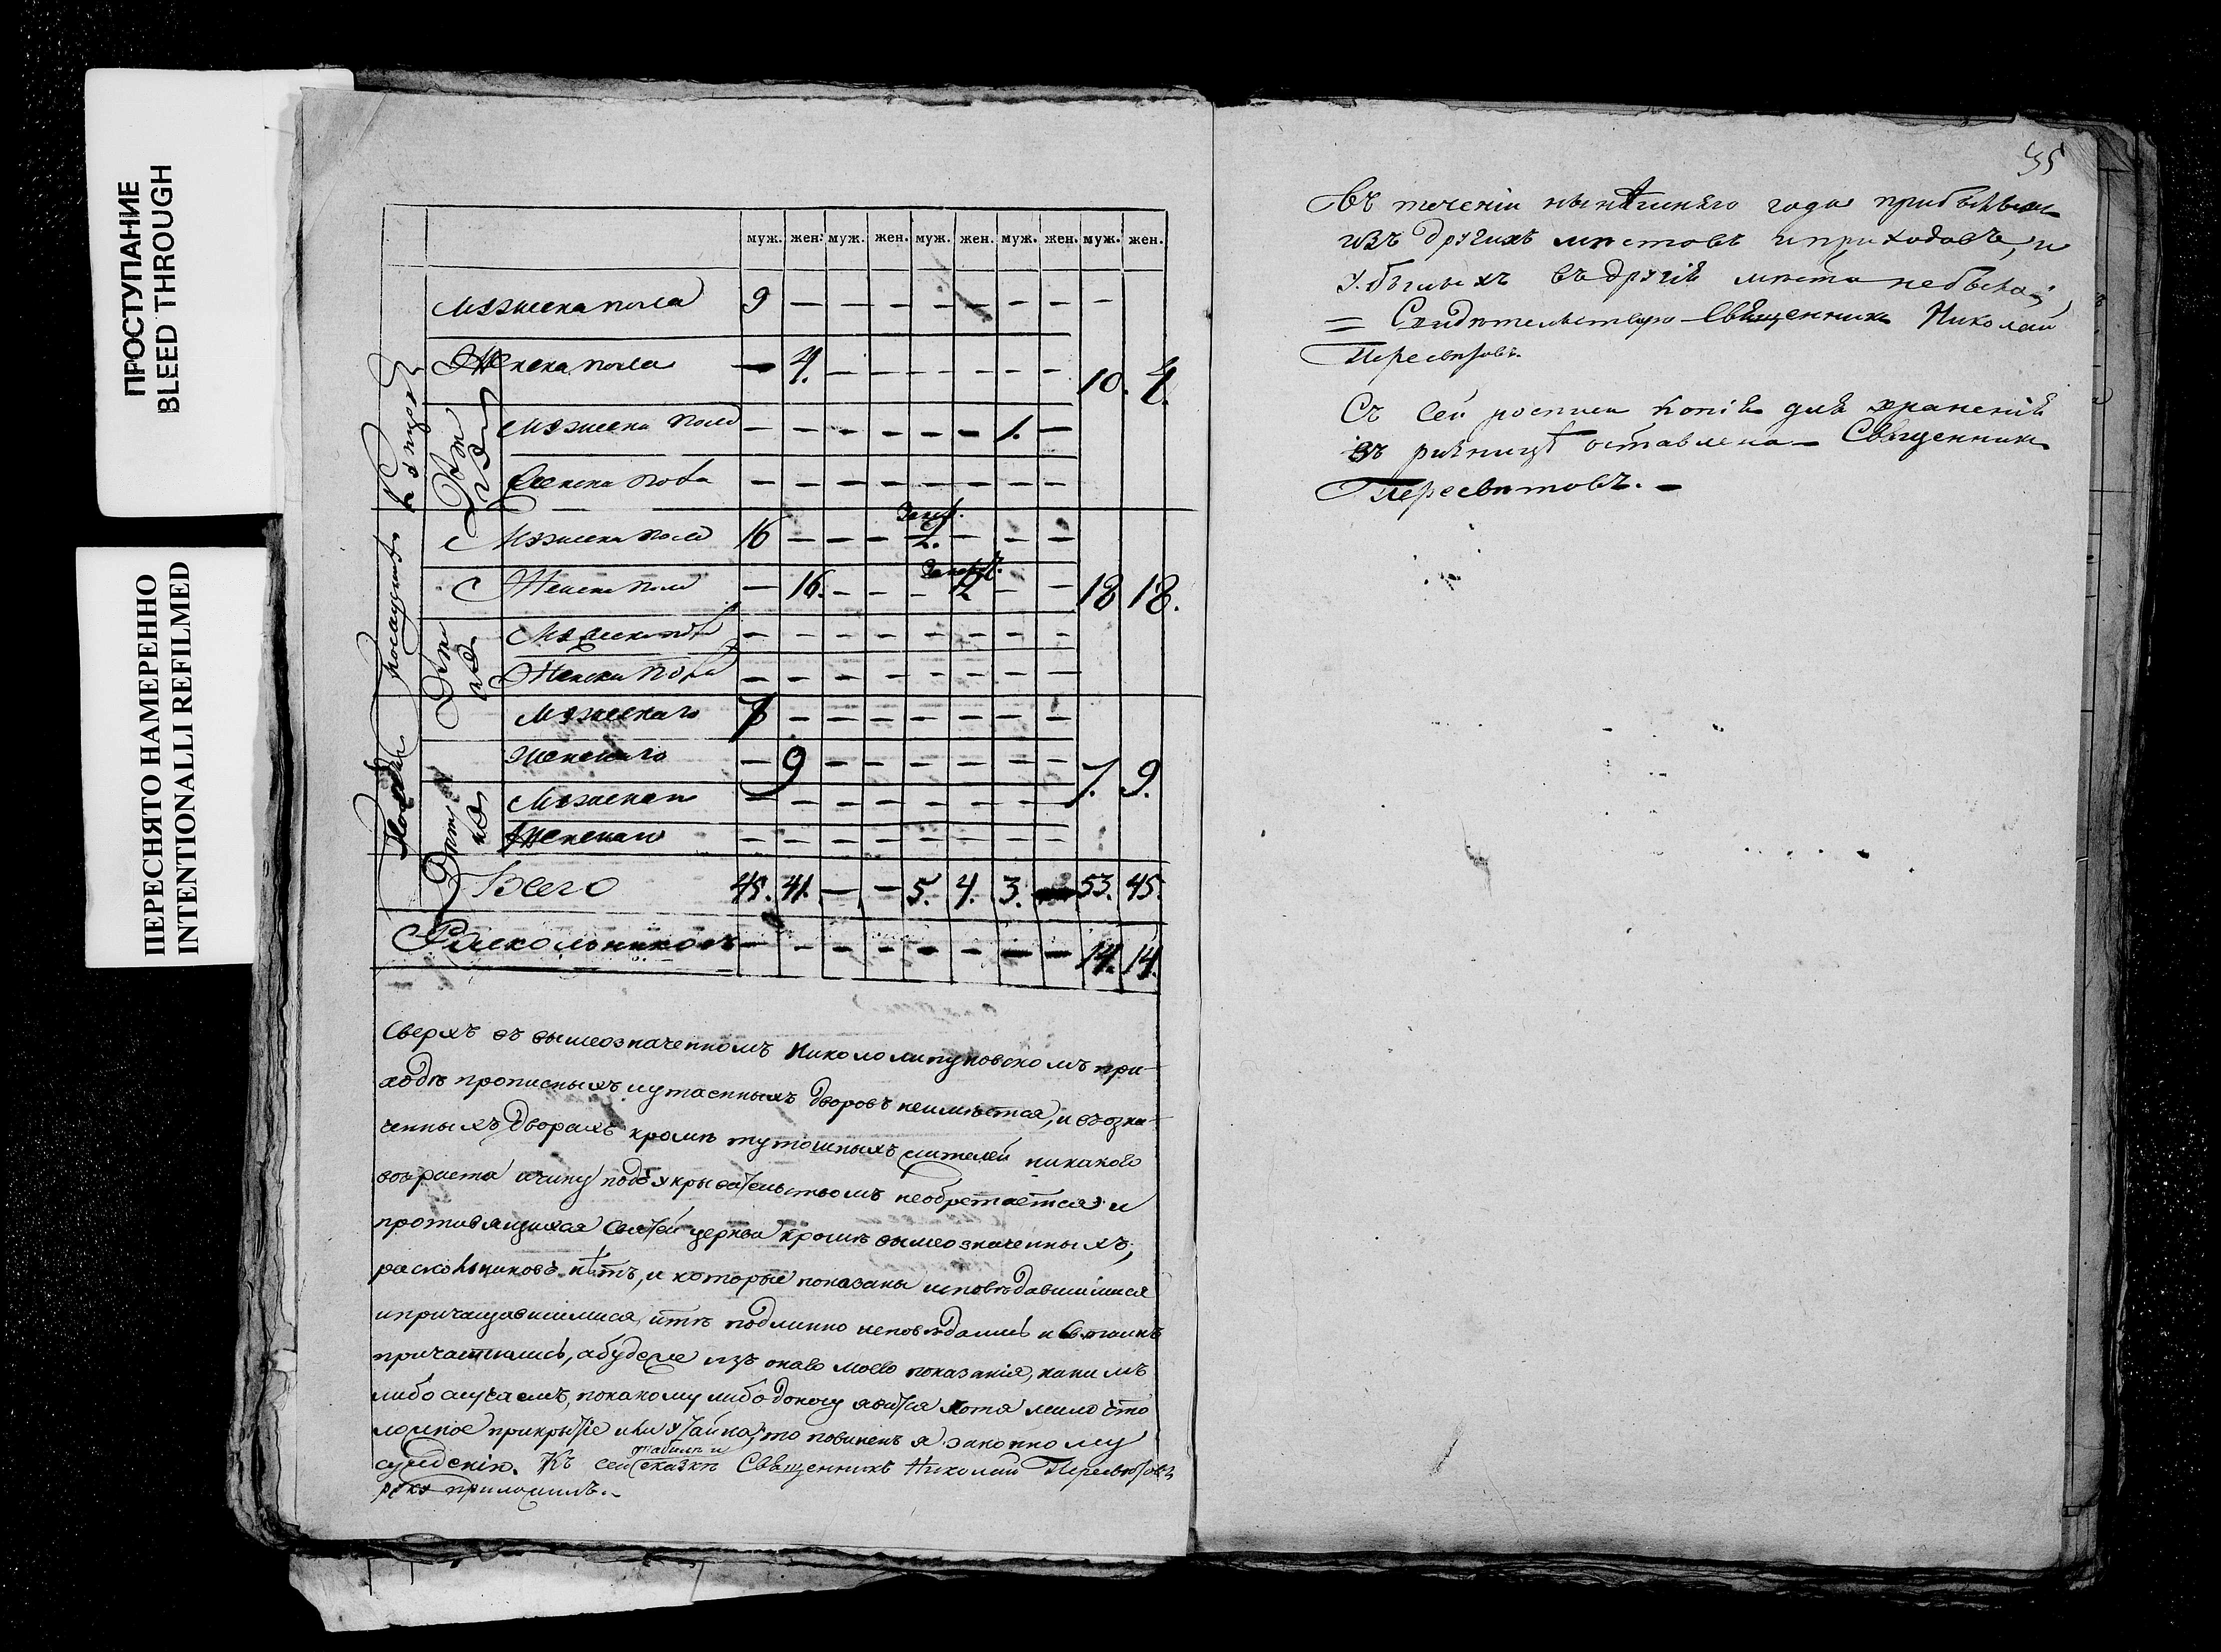 ПРОСТУПАНИЕ
BLEED THROUGH
ПЕРЕСНЯТО НАМЕРЕННО
INTENTIONALLI REFILMED
муж. жен. муж. жен. муж. жен. муж. жен. муж. жен.
Мужеска пола 9 — — — — — — — —
Женска пола — 4. — — — — — — 10. 4.
Мужеска пола — — — — — — 1. —
Женска пола — — — — — — — —
Мужеска пола 16 — — — 2. — — —
Женска пола — 16. — — — 2 — — 18 18.
Мужеска пола — — — — — — — —
Женска пола — — — — — — — —
Мужескаго 7 — — — — — — —
Женскаго — 9 — — — — — — 7. 9.
Мужескаго — — — — — — — —
Женскаго — — — — — — — —
Всего 45. 41. — — 5. 4. 3. — 53. 45.
Раскольниковъ — — — — — — — — 14. 14.
Сверхъ въ вышеозначенномъ Никололипуновскомъ при-
ходѣ прописныхъ и утаенныхъ дворовъ неимѣется, и въ озна-
ченныхъ дворахъ кромѣ тутошныхъ жителей никакого
возраста и чину подъ укрывательствомъ необретается: и
противящихся святей церкви кромѣ вышеозначенныхъ,
раскольниковъ нѣтъ, и которые показаны исповѣдавшимися
и причащавшимися, и тѣ подлинно исповѣдались и
причастились, а буде же изъ онаго моего показанія, какимъ
либо случаемъ, по какому либо доносу явится хотя мало что
ложное прикрытіе или утайка, то повиненъ я законному
сужденію. Къ сей табели и сказкѣ Священникъ Николай Пересвѣтовъ
руку приложилъ.
35
Въ теченіи нынѣшняго года прибывшихъ
изъ другихъ мѣстовъ и приходовъ, и
убылыхъ въ другіе мѣста небыло;
= Свидѣтельствую Священникъ Николай
Пересвѣтовъ.
Съ сей росписи копія для храненія
въ ризницѣ оставлена — Священникъ
Пересвѣтовъ. —